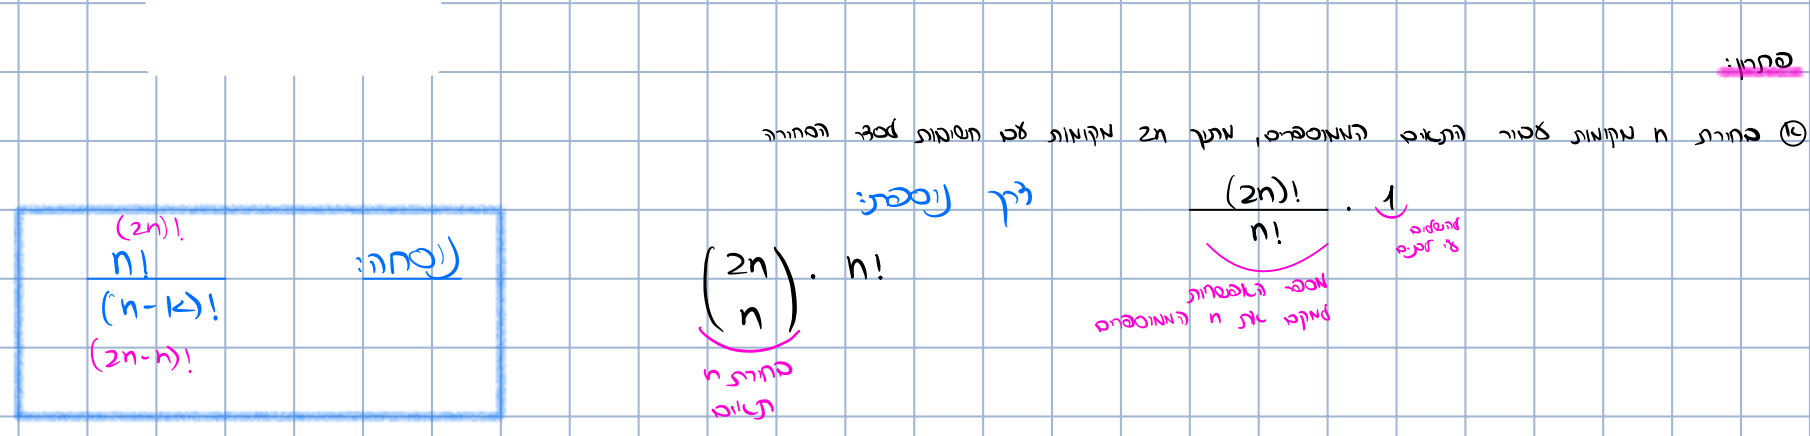 פתרון:
א בחירת n מקומות עבור התאים הממוספרים, מתוך 2n מקומות עם חשיבות לסדר הבחירה
(2n)! / n! · 1
להשלים
ע"י לבנים
מספר האפשרויות
למקם את n הממוספרים
דרך נוספת:
(2n n) · n!
בחירת n
תאים
נוסחה:
(2n)!
n! / (n-k)!
(2n-n)!